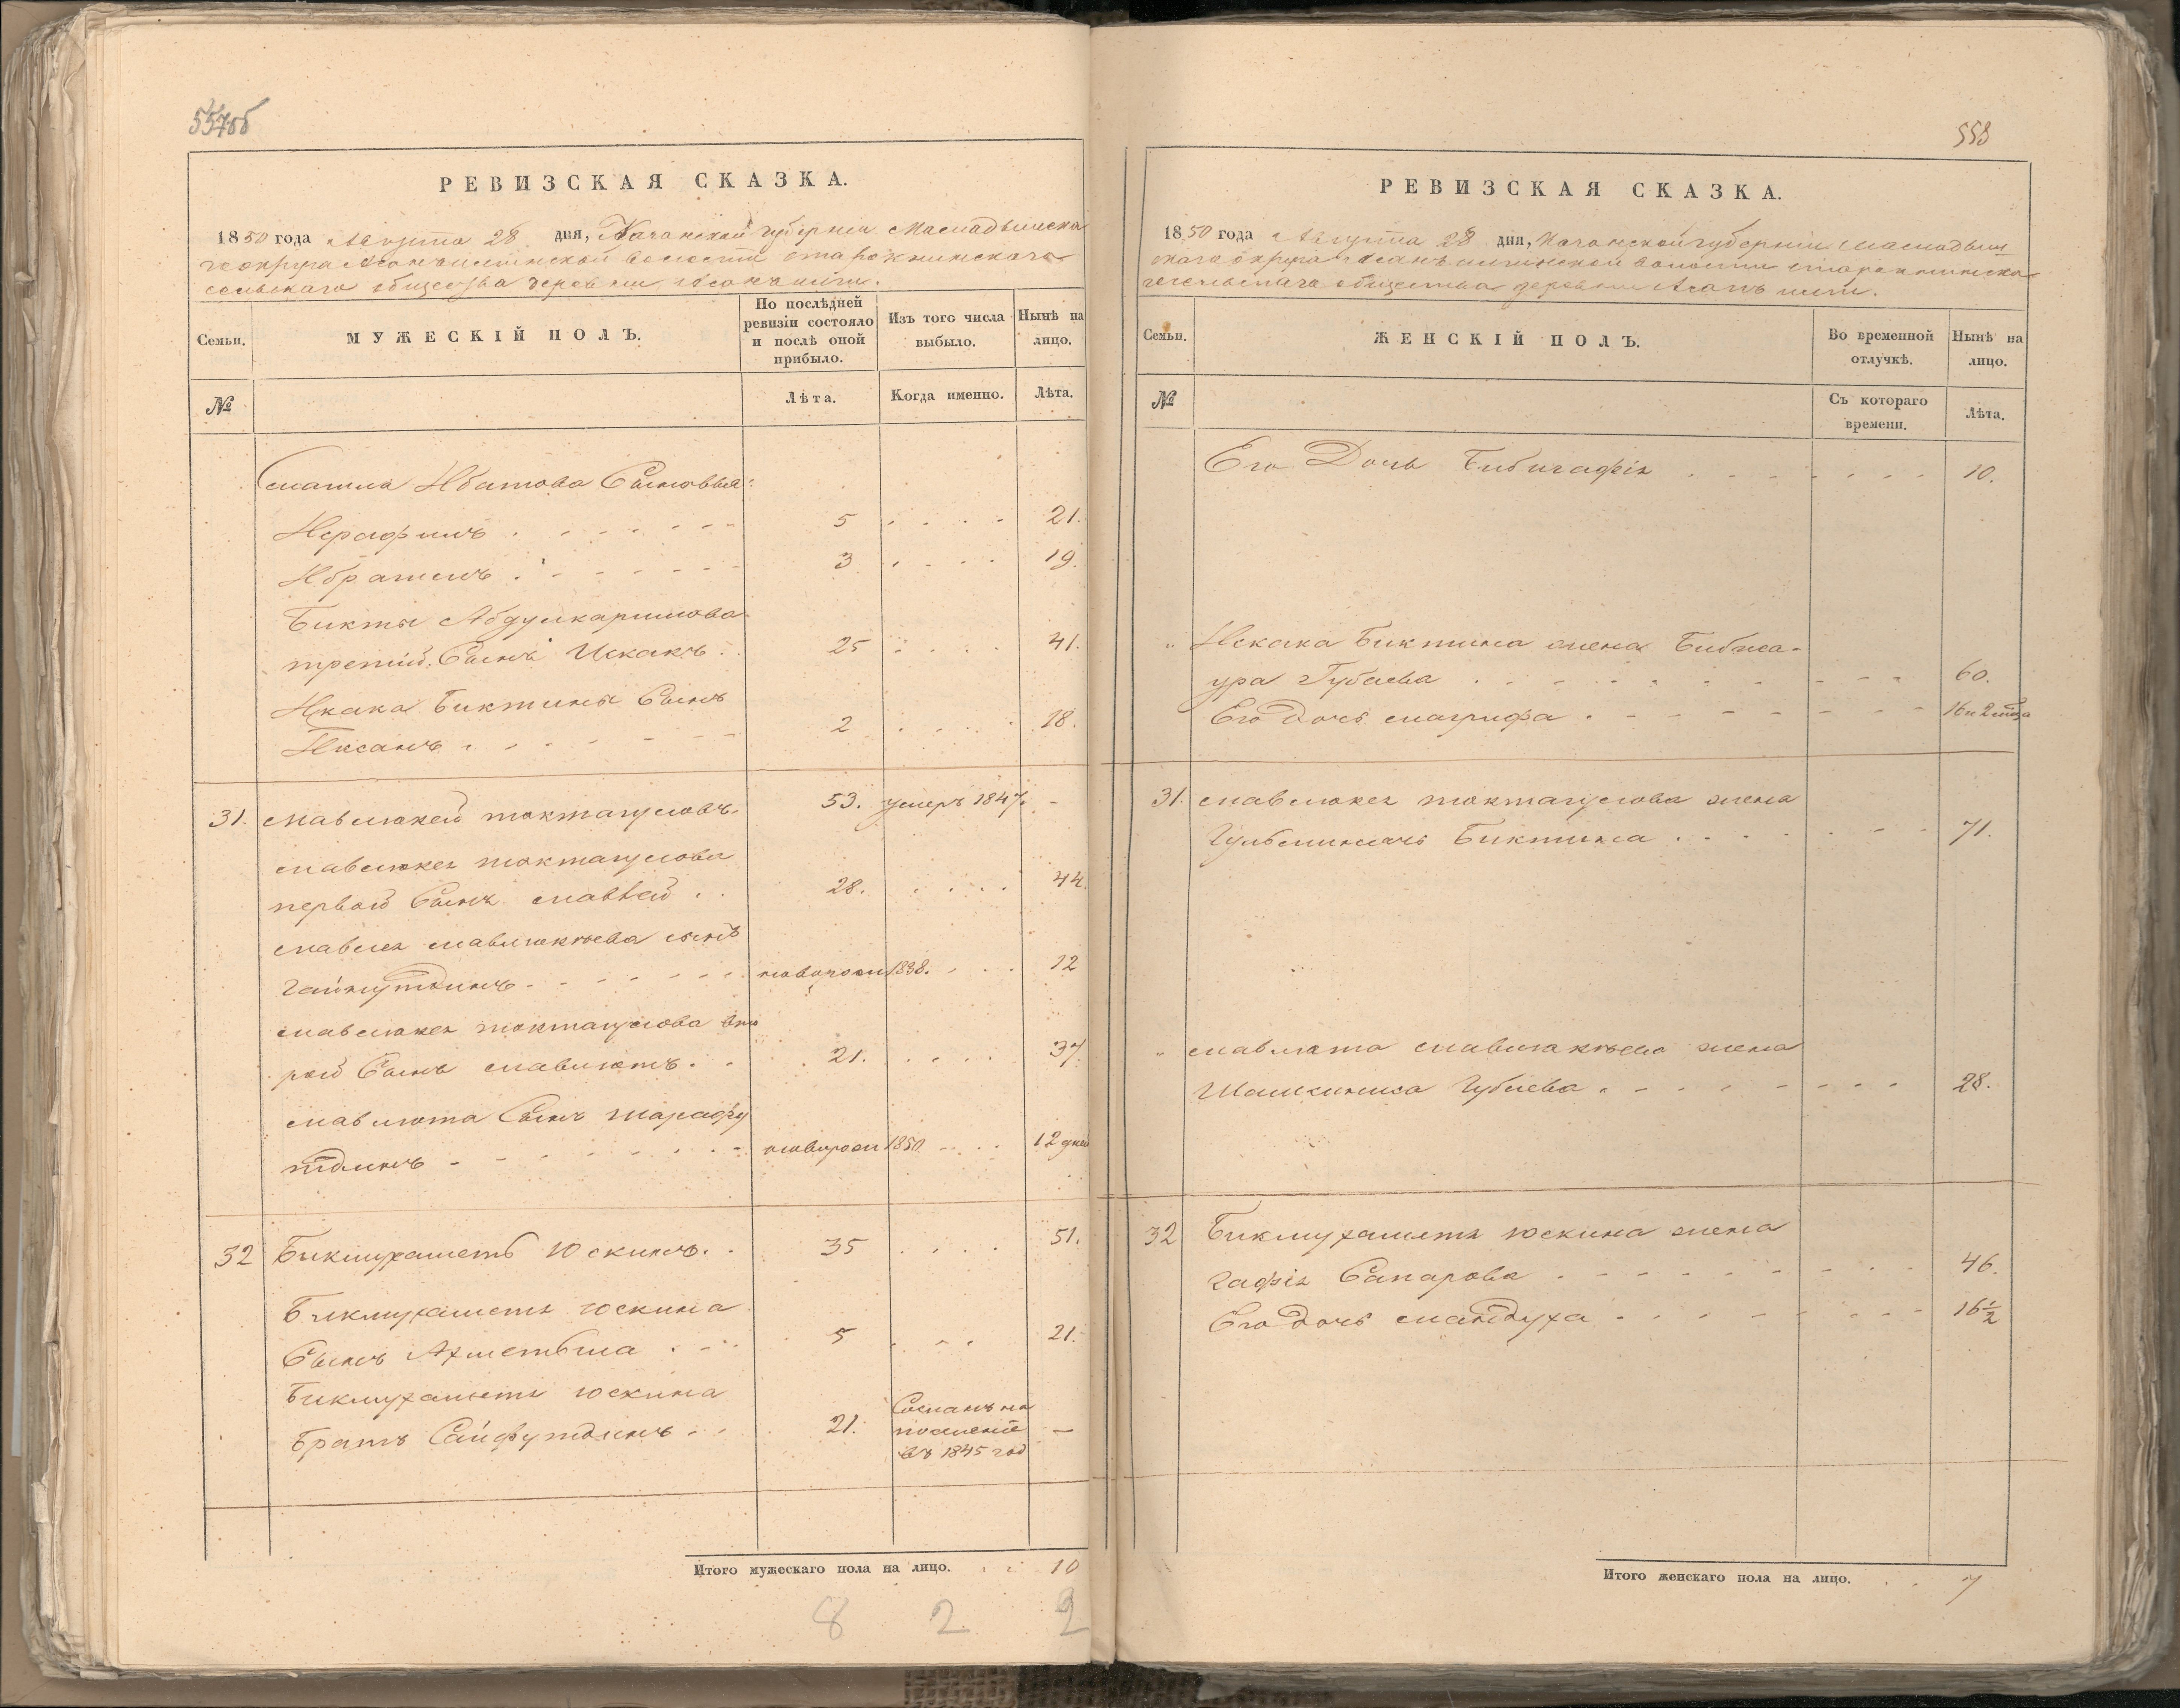 557об
РЕВИЗСКАЯ СКАЗКА.
1850 года Августа 28 дня, Казанской губернии Мамадышска
го округа Асанъилгинской волости
сельскаго общества деревни
Семьи.
МУЖЕСКІЙ ПОЛЪ.
По послѣдней ревизіи состояло и послѣ оной прибыло.
Изъ того числа выбыло.
Нынѣ на лицо.
№
Лѣта.
Когда именно.
Лѣта.
Смаила Ибатова Сыновья:
Исрафилъ 5 21.
Ибрагимъ 3 19.
Бикты Абдулкаримова
третій Сынъ Искакъ 25 41.
Искака Биктины Сынъ
Иксанъ 2 18.
31. Мавлюкей Токтагуловъ 53. умеръ 1847. -
Мавлюкея Токтагулова
первой Сынъ Мавлей 28. 44.
Мавлея Мавлюкѣева сынъ
Гайнутдинъ новорожд 1838. 12
Мавлюкея Токтагулова вто
рой Сынъ Мавлютъ 21. 37.
Мавлюта Сынъ Шарафу
тдинъ новорож 1850 12 дней
32 Бикмухаметъ Юскинъ 35 51.
Бикмухаметя Юскина
Сынъ Ахметьша 5 21.
Бикмухаметя Юскина
Братъ Сайфутдинъ 21. Сосланъ на
поселеніе
въ 1845 год —
Итого мужескаго пола на лицо. 10
8 2 2
558
РЕВИЗСКАЯ СКАЗКА.
1850 года Августа 28 дня, Казанской губерніи Мамадыш
скаго округа Асанъилгинской волости
сельскаго общества деревни
Семьи.
ЖЕНСКІЙ ПОЛЪ.
Во временной отлучкѣ.
Нынѣ на лицо.
№
Съ котораго времени.
Лѣта.
Его Дочь Бибигафія 10.
" Искака Биктина жена Бибжа-
ура Губаева 60.
Его дочь Магрифа 16 и 2 мѣся
31. Мавлюкея Токтагулова жена
Гульбиначъ Биктина 71.
" Мавлюта Мавлюкѣева жена
Шамкиниса Губаева 28.
32 Бикмухаметя Юскина жена
Гафія Сапарова 46.
Его дочь Мамдуха 16½
Итого женскаго пола на лицо. 7